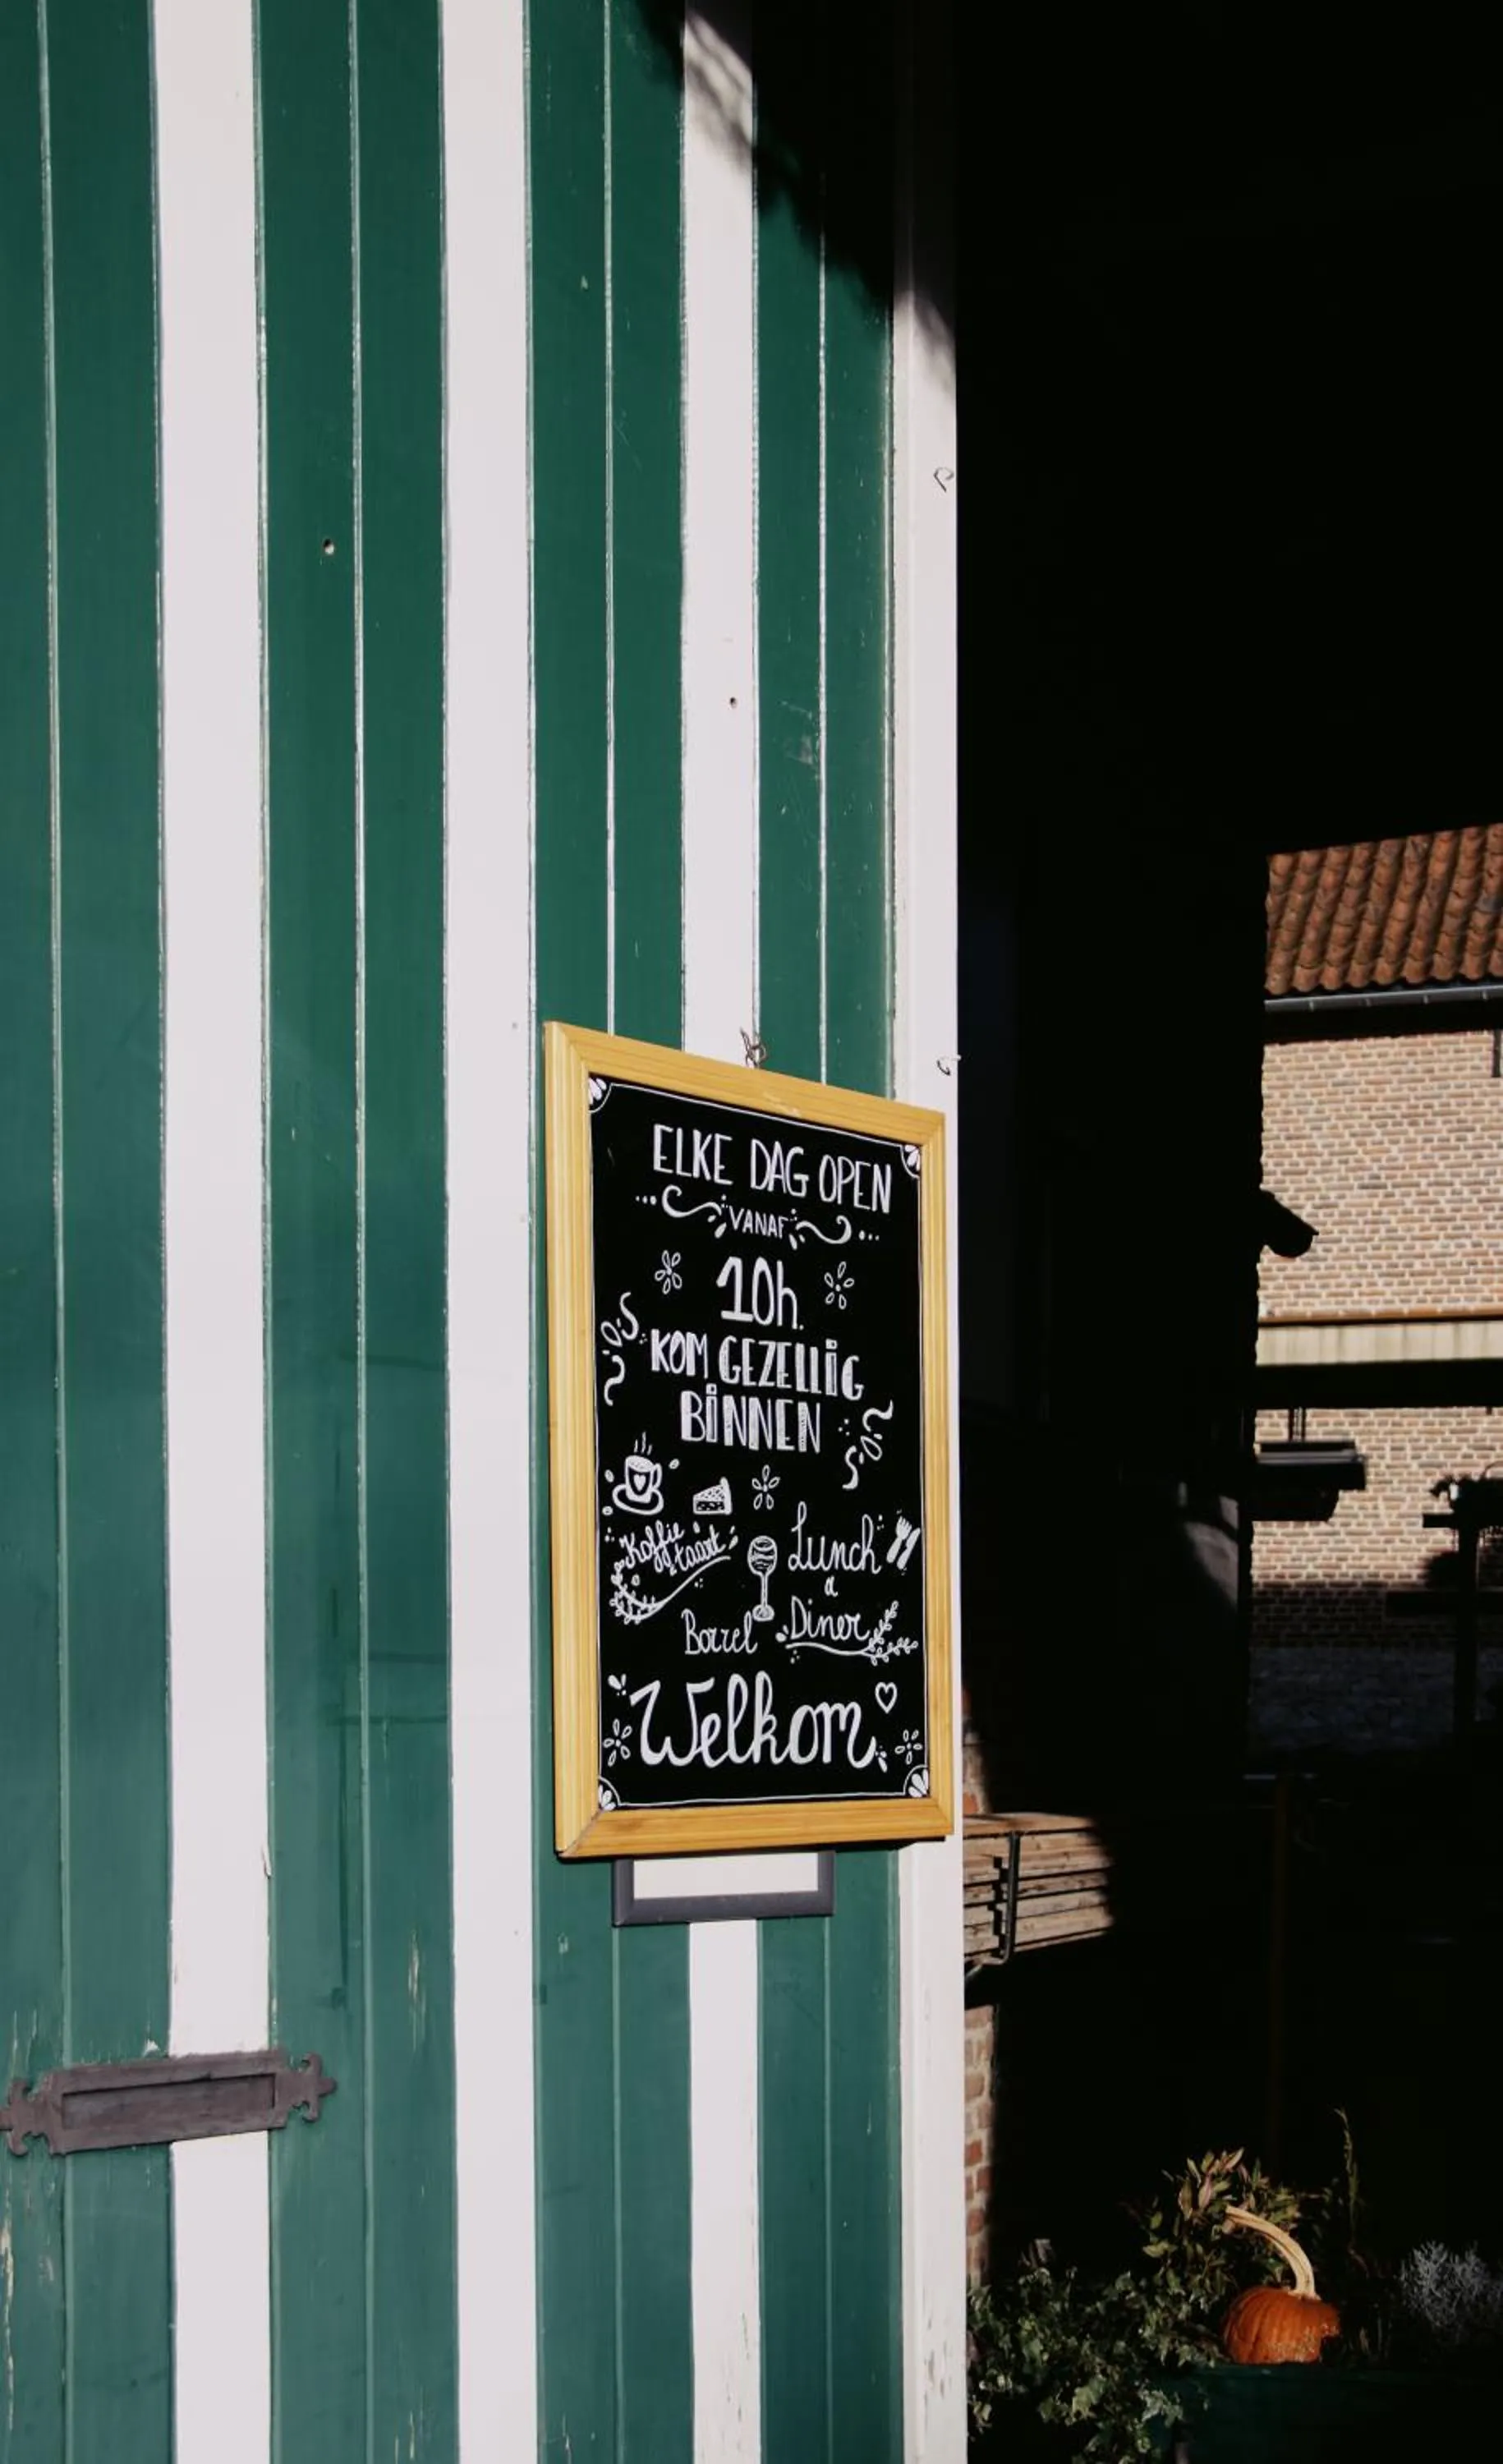 ELKE DAG OPEN
VANAF
10h.
KOM GEZELLIG
BINNEN
Koffie
taart
Lunch
&
Diner
Borrel
Welkom